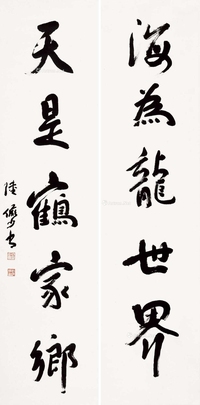 海為龍世界
天是鶴家鄉
陸儼少書